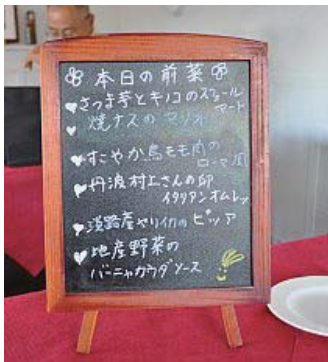 本日の前菜
さつま芋とキノコのスフォール
マート
焼ナスのマリネ
すこやか鳥モモ肉の
ローマ風
丹波村上さんの卵
イタリアンオムレツ
淡路産ヤリイカのピッツア
地産野菜の
バーニャカウダソース